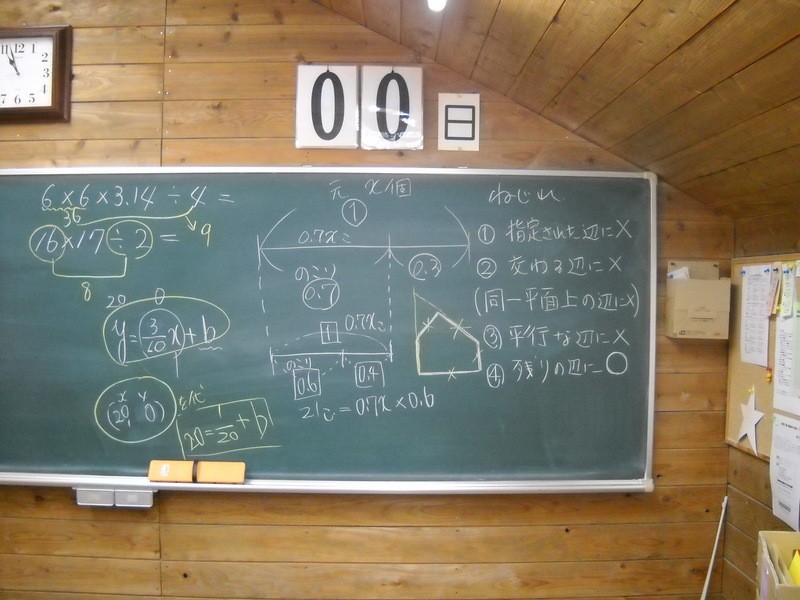 00日
6×6×3.14÷4=
36
9
16×17÷2=
8
20 0
y=3/20x+b
x y
(20, 0)
を代
元 x個
①
0.7xこ
のこり
0.7
0.3
1
0.7xこ
のこり
0.6
0.4
21こ=0.7x×0.6
ねじれ
① 指定された辺に×
② 交わる辺に×
(同一平面上の辺に×)
③ 平行な辺に×
④ 残りの辺に○